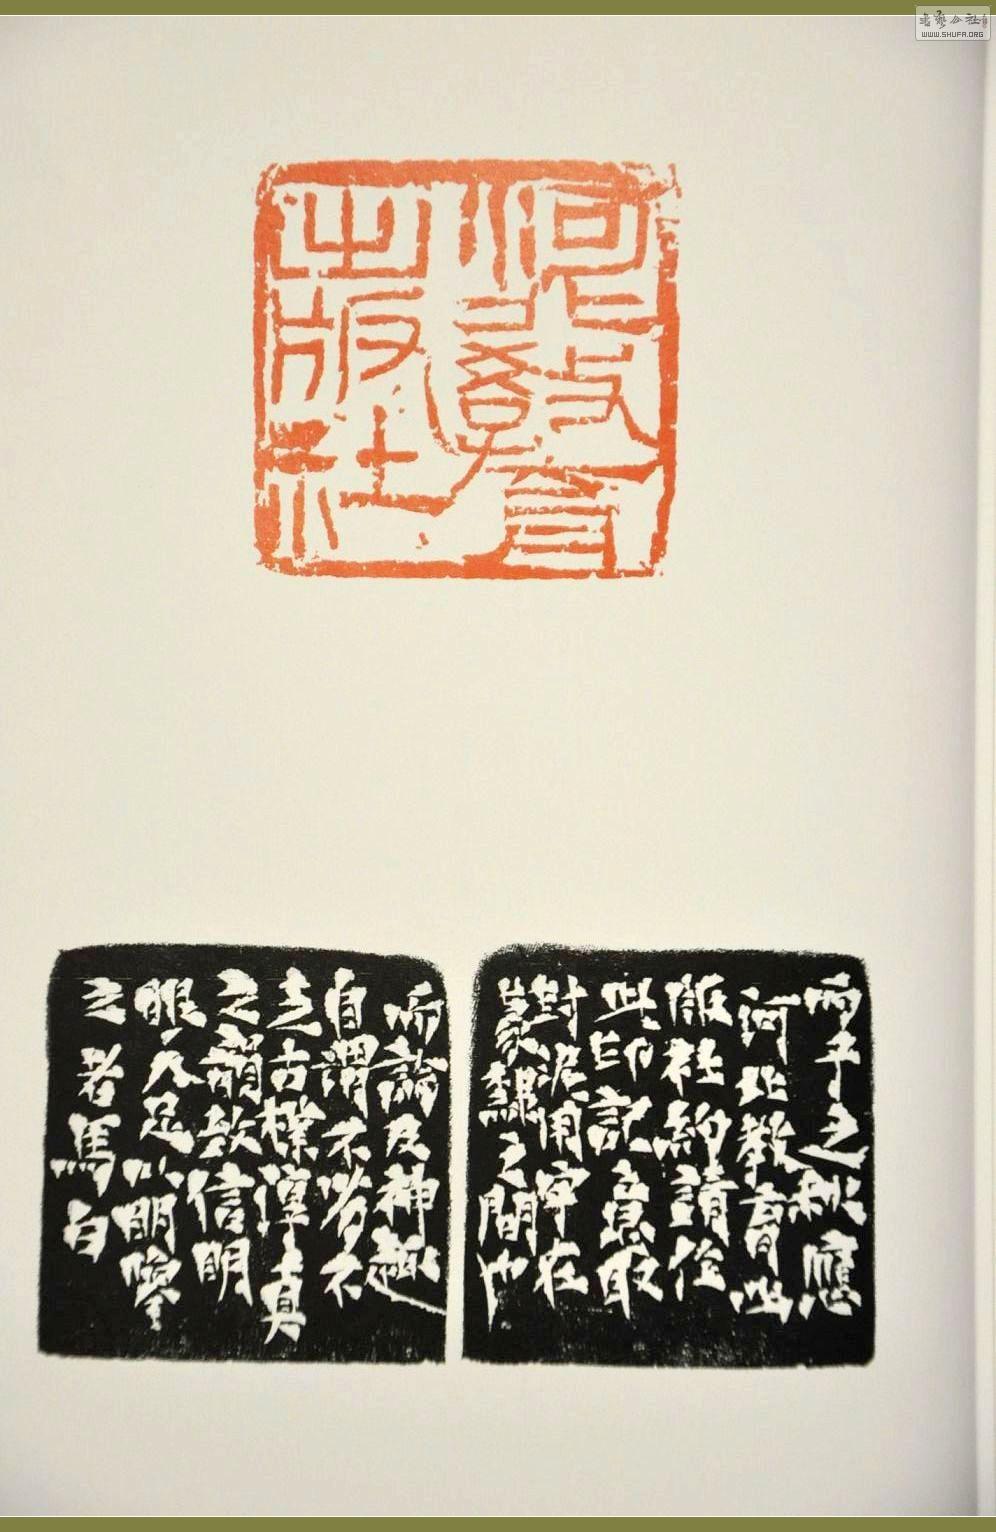 書藝公社
WWW.SHUFA.ORG
河北教育
出版社
丙子之秋應
河北教育出
版社約請作
此印記意取
封泥用字在
篆隸之間也
而論及神趣
自謂不劣不
走古樸渾真
之韻故信明
眼人足以明
之者馬白